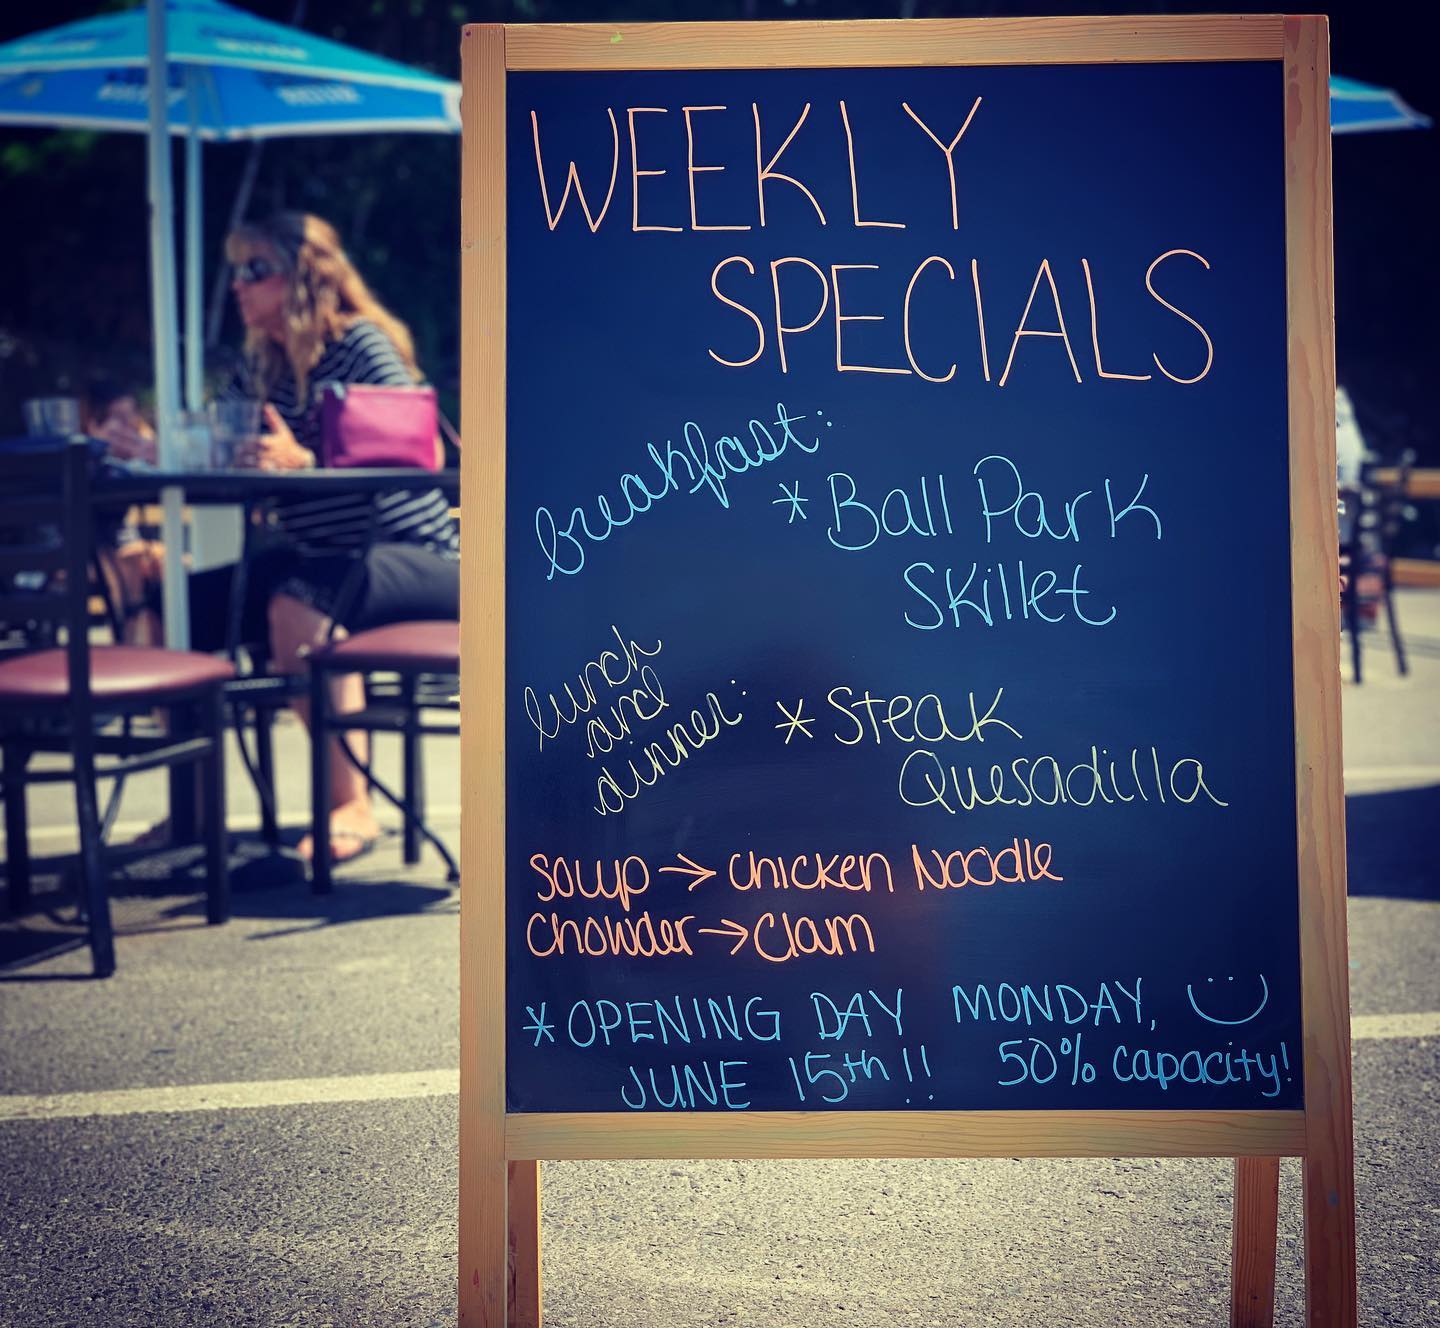 WEEKLY
SPECIALS
breakfast:
* Ball Park
Skillet
lunch
and
dinner:
* Steak
Quesadilla
Soup → Chicken Noodle
Chowder → Clam
* OPENING DAY MONDAY,
JUNE 15th!! 50% capacity!